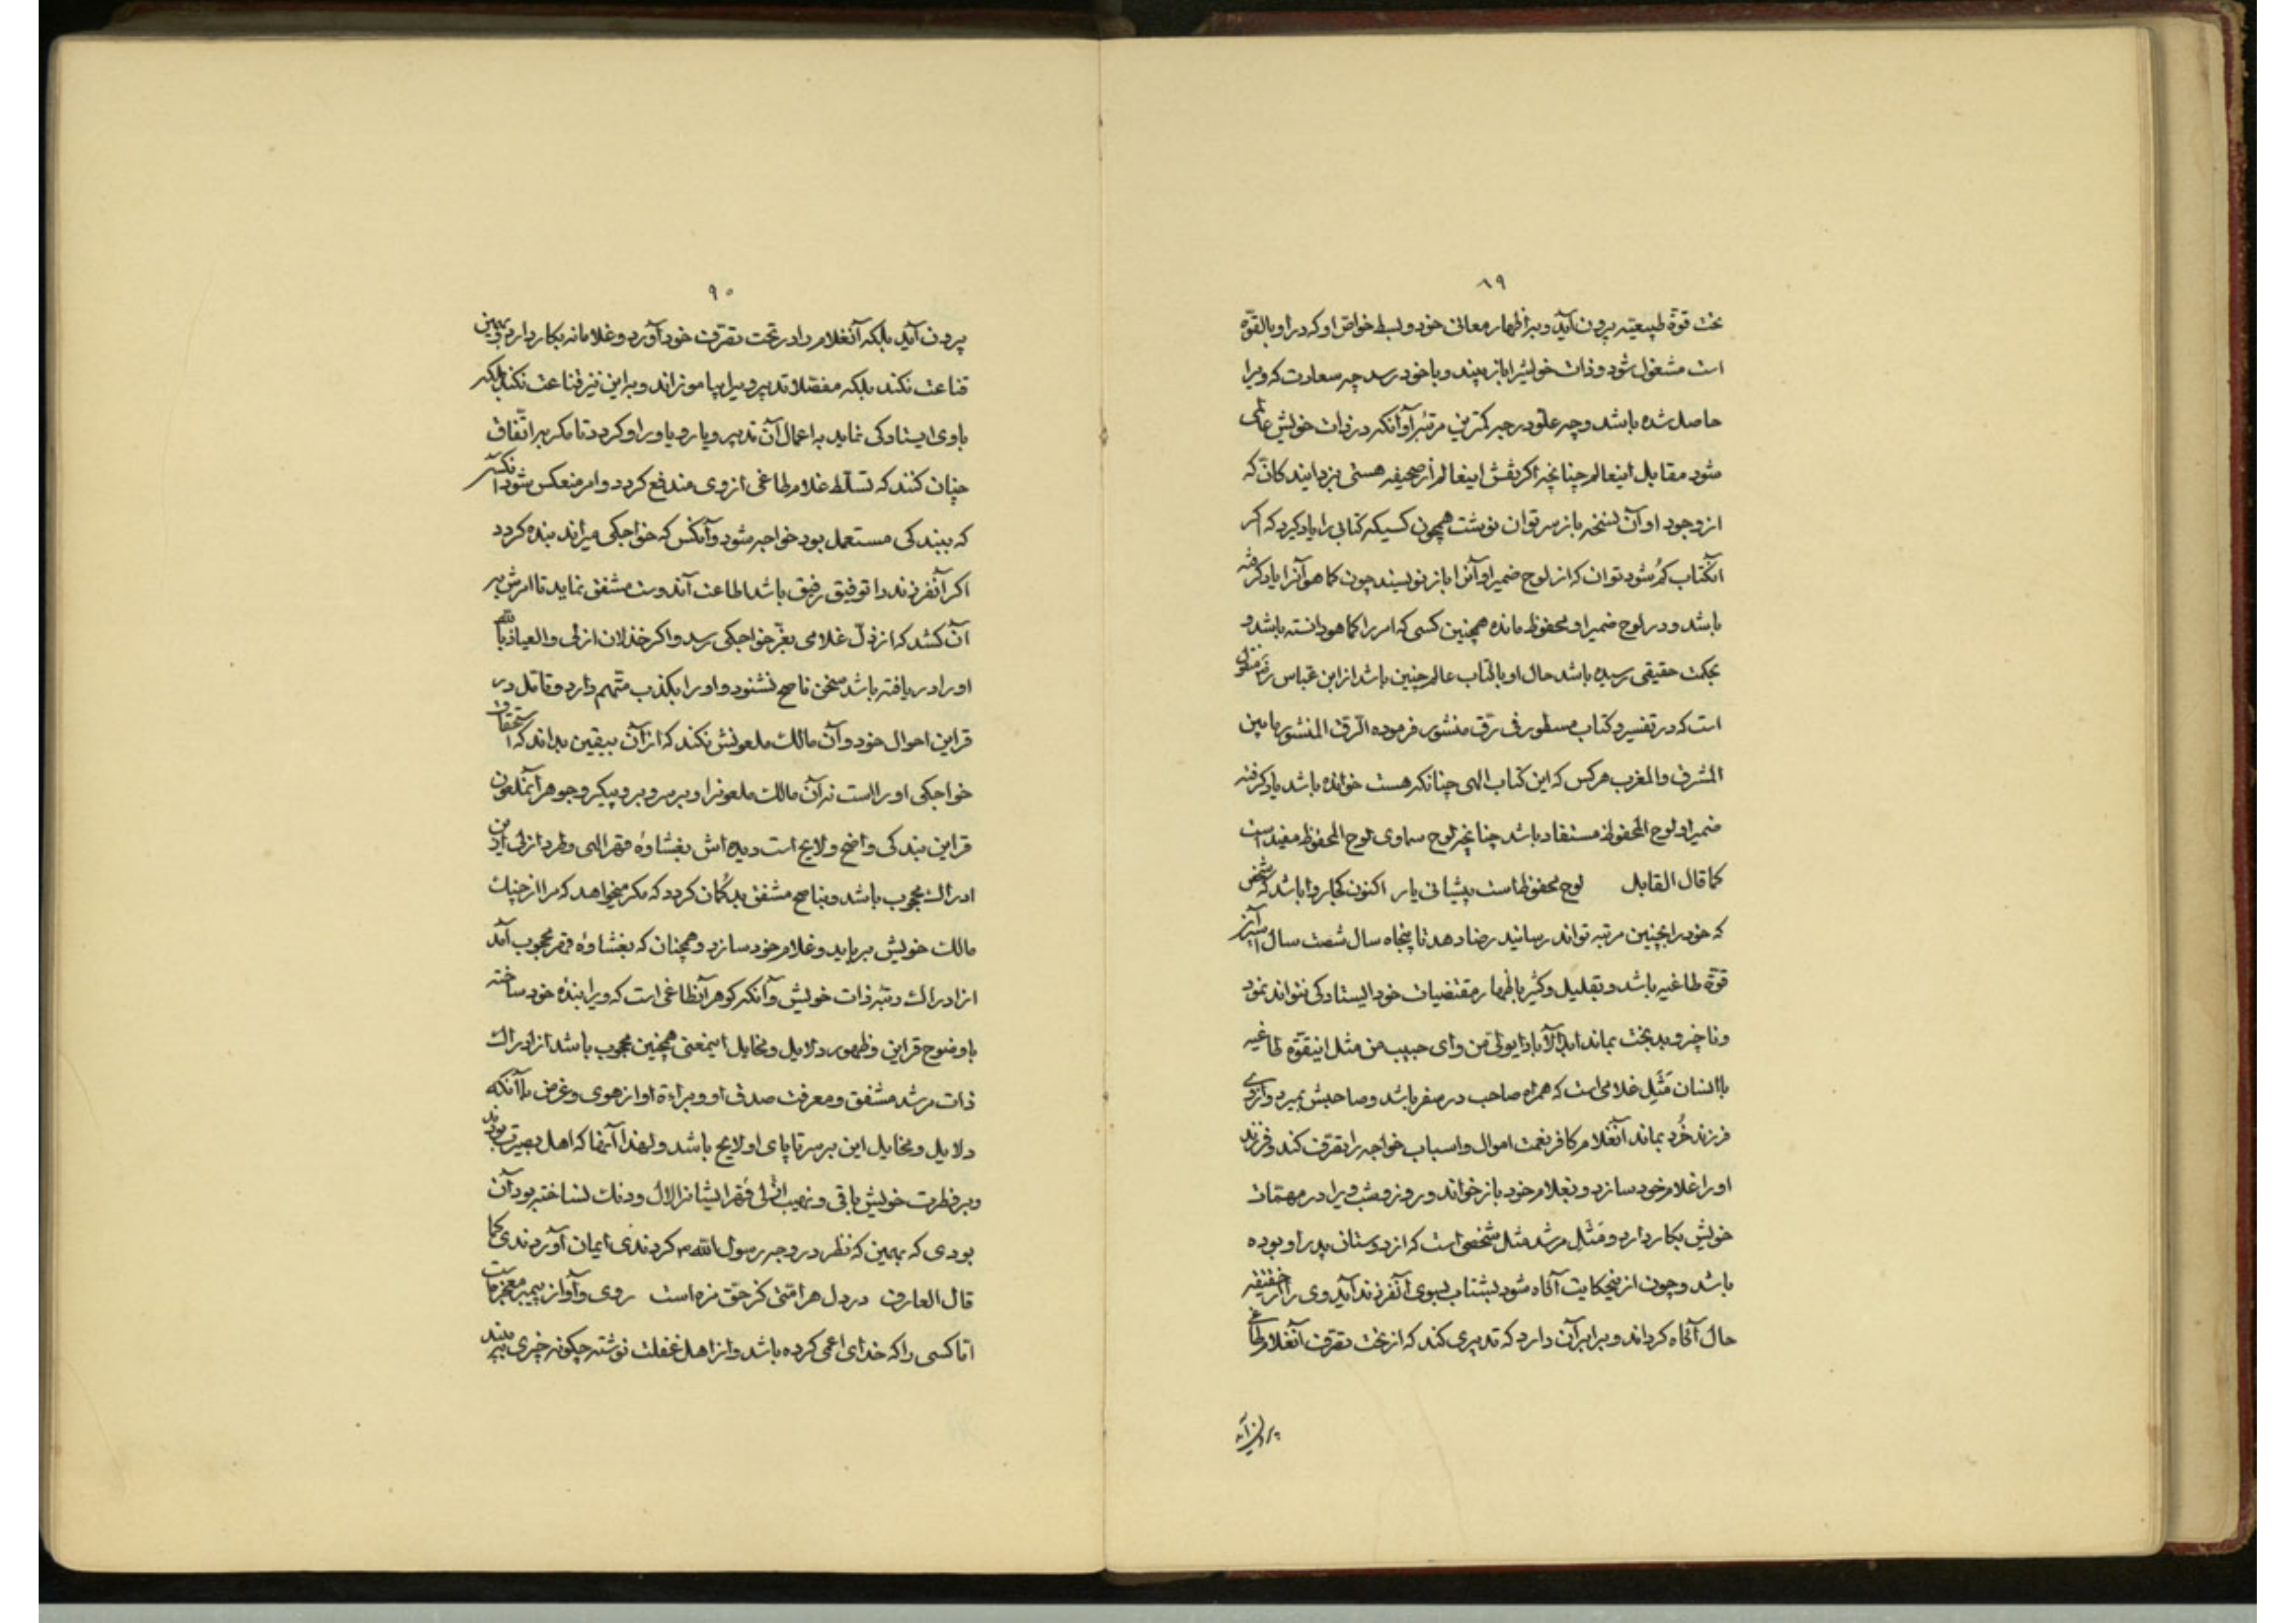 ۸۹
تحت قوة طبیعیه بیرون آید و به اظهار معانی خود و بسط خواص او که در او بالقوّه
است مشغول شود و ذات خویش را باز بیند و با خود رسد چه سعادت که ویرا
حاصل شده باشد و چه علوّ درجه کمترین مرتبه او آنکه در ذات خویش عالمی
شود مقابل اینعالم چنانچه اگر نقش اینعالم از صحیفه هستی بزدایند کانّه که
از وجود او آن نسخه باز سر توان نوشت همچون کسیکه کتابی را یاد گیرد که اگر
آنکتاب گُم شود توان که از لوح ضمیر او آنرا باز نویسند چون کما هو آنرا یاد گرفته
باشد و در لوح ضمیر او محفوظ مانده همچنین کسی که امر را کما هو دانسته باشد و
بحکمت حقیقی رسیده باشد حال او با کتاب عالم چنین باشد از ابن عباس رض منقول
است که در تفسیر و کتاب مسطور فی رق منشور فرموده الرق المنشور ما بین
المشرق والمغرب هر کس که این کتاب الهی چنانکه هست خوانده باشد یاد گرفته
ضمیر او لوح المحفوظ مستفاد باشد چنانچه لوح سماوی لوح المحفوظ مفید است
کما قال القایل لوح محفوظ است پیشانی یار اکنون کجا روا باشد که شخص
که خود را بچنین مرتبه تواند رسانید رضا دهد تا پنجاه سال شصت سال اسیر
قوّة طاغیه باشد و بتقلیل و کثیر باظهار مقتضیات خود ایستادگی نتواند نمود
و ناچیز و بدبخت بماند ابد الآباد ایولی من و ای حبیب من مثل اینقوّه طاغیه
با انسان مَثَلِ غلامی است که همراه صاحب در سفر باشد و صاحبش بمیرد و از وی
فرزند خُرد بماند آنغلام کافر نعمت اموال و اسباب خواجه را تصرّف کند و فرزند
او را غلام خود سازد و بغلام خود باز خواند و روز و شب ویرا در مهمّات
خویش بکار دارد و مَثَلِ مرشد مثل شخصی است که از دوستان پدر او بوده
باشد و چون از ینحکایت آگاه شود بشتاب بسوی آنفرزند آید وی را از حقیقت
حال آگاه گرداند و برابر آن دارد که تدبیری کند که از تحت تصرّف آنغلام طاغی
بیرون آید
۹۰
بیرون آید بلکه آنغلام را در تحت تصرّف خود آورد و غلامانه بکار دارد بهمین
قناعت نکند بلکه مفصّلا تدبیر ویرا بیاموزاند و به این نیز قناعت نکند بلکه
با وی ایستادگی نماید به اعمال آن تدبیر و یار و یاور او گردد تا مگر به اتّفاق
چنان کنند که تسلّط غلام طاغی از وی مندفع گردد و امر منعکس شود آنکس
که ببندگی مستعمل بود خواجه شود و آنکس که خواجگی میراند بنده گردد
اگر آنفرزند را توفیق رفیق باشد اطاعت آندوست مشفق نماید تا امرش به
آن کشد که از ذلّ غلامی بعزّ خواجگی رسد و اگر خذلان ازلی والعیاذ بالله
او را دریافته باشد سخن ناصح نشنود و او را بکذب متّهم دارد و تأمل در
قراین احوال خود و آن مالک ملعونش نکند که از آن بیقین بداند که استحقاق
خواجگی او را است نه آن مالک ملعونرا و بر سر و بر و پیکر و جوهر آنملعون
قراین بندگی واضح و لایح است دیده اش بغشاوۀ قهر الهی و طرد ازلی از این
ادراک محجوب باشد و بناصح مشفق بدگُمان گردد که مگر میخواهد که مرا از چنگ
مالک خویش برباید و غلام خود سازد و همچنان که بغشاوۀ قهر محجوب آمد
از ادراک رتبه ذات خویش و آنکه گوهر آنطاغی است که ویرا بندۀ خود ساخته
با وضوح قراین و ظهور دلایل و مخایل اینمعنی همچنین محجوب باشد از ادراک
ذات مرشد مشفق و معرفت صدق او و براءة او از هوی و غرض با آنکه
دلایل و مخایل این بر سر تا پای او لایح باشد و لهذا آنها که اهل بصیرت بودند
و بر فطرت خویش باقی و نهیب ازلی قهر ایشانرا لال و دنگ نساخته بود آن
بودی که بهمین که نظر در وجه رسول الله ص کردندی ایمان آوردندی کما
قال العارف در دل هر امّتی کز حقّ مزه است روی و آواز پیمبر معجزه است
امّا کسی را که خدای اعمی کرده باشد و از اهل غفلت نوشته چگونه چیزی بیند